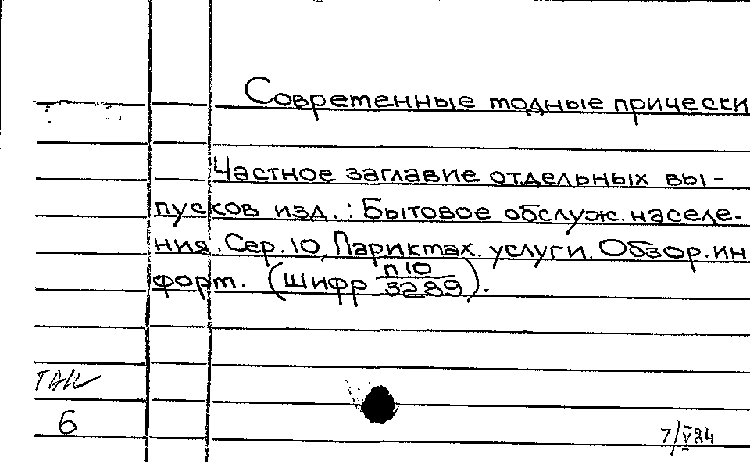 Современные модные прически
Частное заглавие отдельных вы-
пусков изд.: Бытовое обслуж. населе-
ния. Сер. 10, Парикмах. услуги. Обзор. ин
форм. (Шифр п10/3289).
6